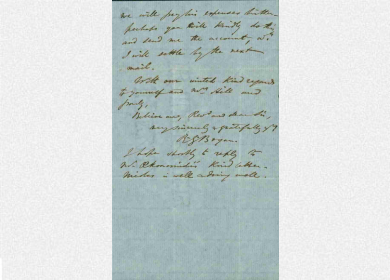 we will pay his expenses hither
perhaps you will kindly do this
and send me the account, wh
I will settle by the next
mail.
With our united kind regards
to yourself and Mrs Hill and
family,
Believe me, Revd and dear Sir,
very sincerely & gratefully yrs
I hope shortly to reply to
Mr kind letter.
Wishes - well